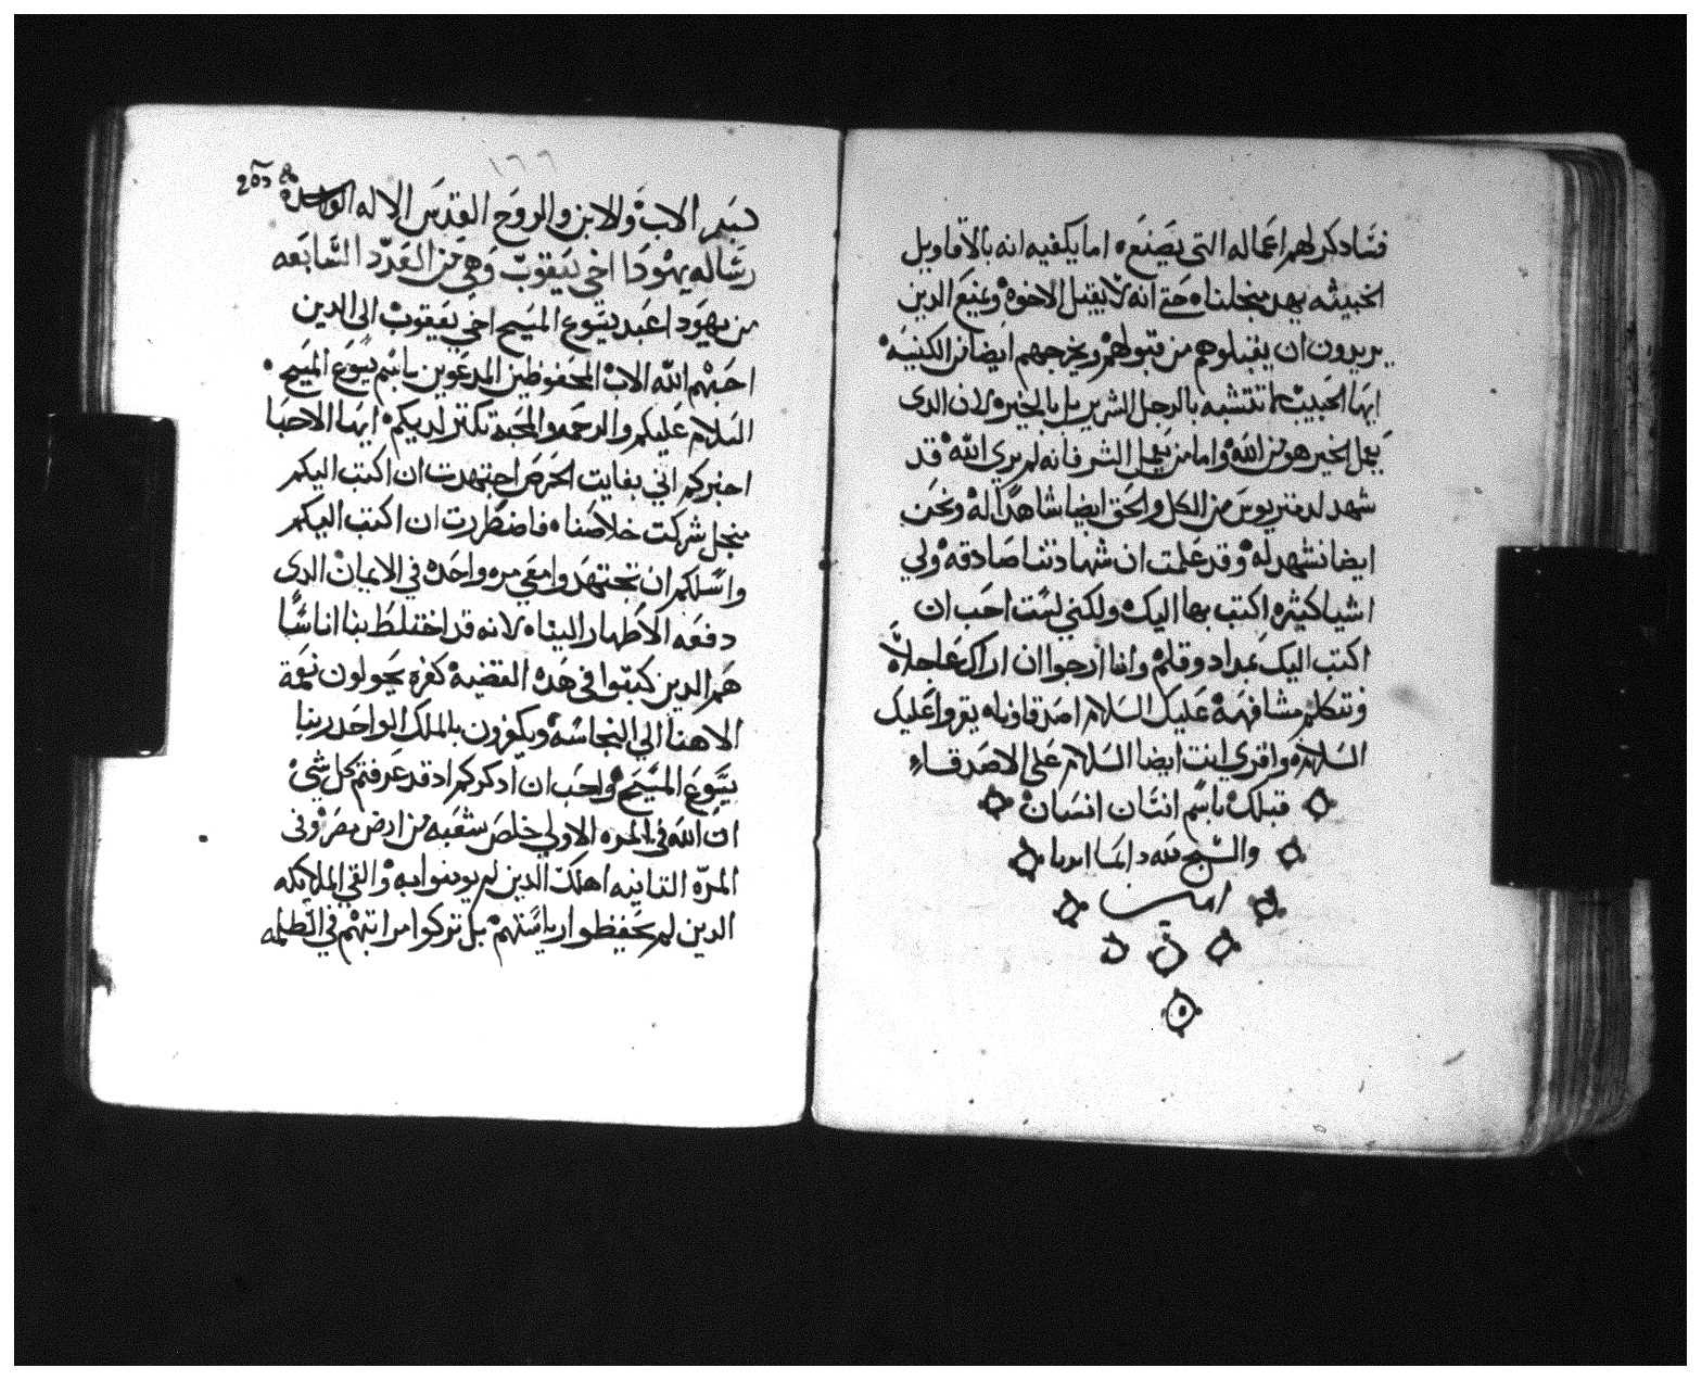 فسادكر لهم اعماله التى يصنع ه اما يكفيه انه بالاقاويل
الخبيثه يهد منجلنا ه حتى انه لا يقبل الاخوه ويمنع الدين
يريدون ان يقبلوهم من قبولهم ويخرجهم ايضا من الكنيسه
ايها الحبيب لا تتشبه بالرجل الشرير بل بالخير ه لان الدى
يعمل الخير هو من الله واما من يعمل الشر فانه لم يرى الله قد
شهد لدمتريوس من الكل والحق ايضا شاهدا له ونحن
ايضا نشهد له وقد علمت ان شهادتنا صادقه ولي
اشيا كثيره اكتب بها اليك ولكني لست احب ان
اكتب اليك بمداد وقلم وانما ارجوا ان اراك عاجلا ه
ونتكلم مشافهة عليك السلام اصدقاونا ه يقروا عليك
السلام ه واقري انت ايضا السلام على الاصدقاء
قبلك باسم انسان انسان
والسبح لله دايما ابديا
امين
١٦٦
بسم الاب والابن والروح القدس الاله الواحد
رساله يهودا اخي يعقوب وهي من العدد السابعه
من يهودا عبد يسوع المسيح اخي يعقوب الى الدين
احبهم الله الاب المحفوظين المدعوين باسم يسوع المسيح ه
السلام عليكم والرحمه والمحبة تكتر لديكم ه ايها الاحبا
اخبركم اني بغايت الحرص اجتهدت ان اكتب اليكم
منجل شركت خلاصنا ه فاضطررت ان اكتب اليكم
واسلكم ان تجتهدوا معي مره واحده في الايمان الدى
دفعه الاطهار الينا ه لانه قد اختلط بنا اناسا
هم الدين كتبوا في هده القضيه كفره يحولون نعمة
الاهنا الي النجاسه ويكفرون بالملك الواحد ربنا
يسوع المسيح واحب ان ادكركم اد قد عرفتم كل شي
ان الله في المره الاولي خلص شعبه من ارض مصر وفى
المره التانيه اهلك الدين لم يومنوا به والقي الملايكه
الدين لم يحفظوا رياستهم بل تركوا مراتبهم في الظلمه